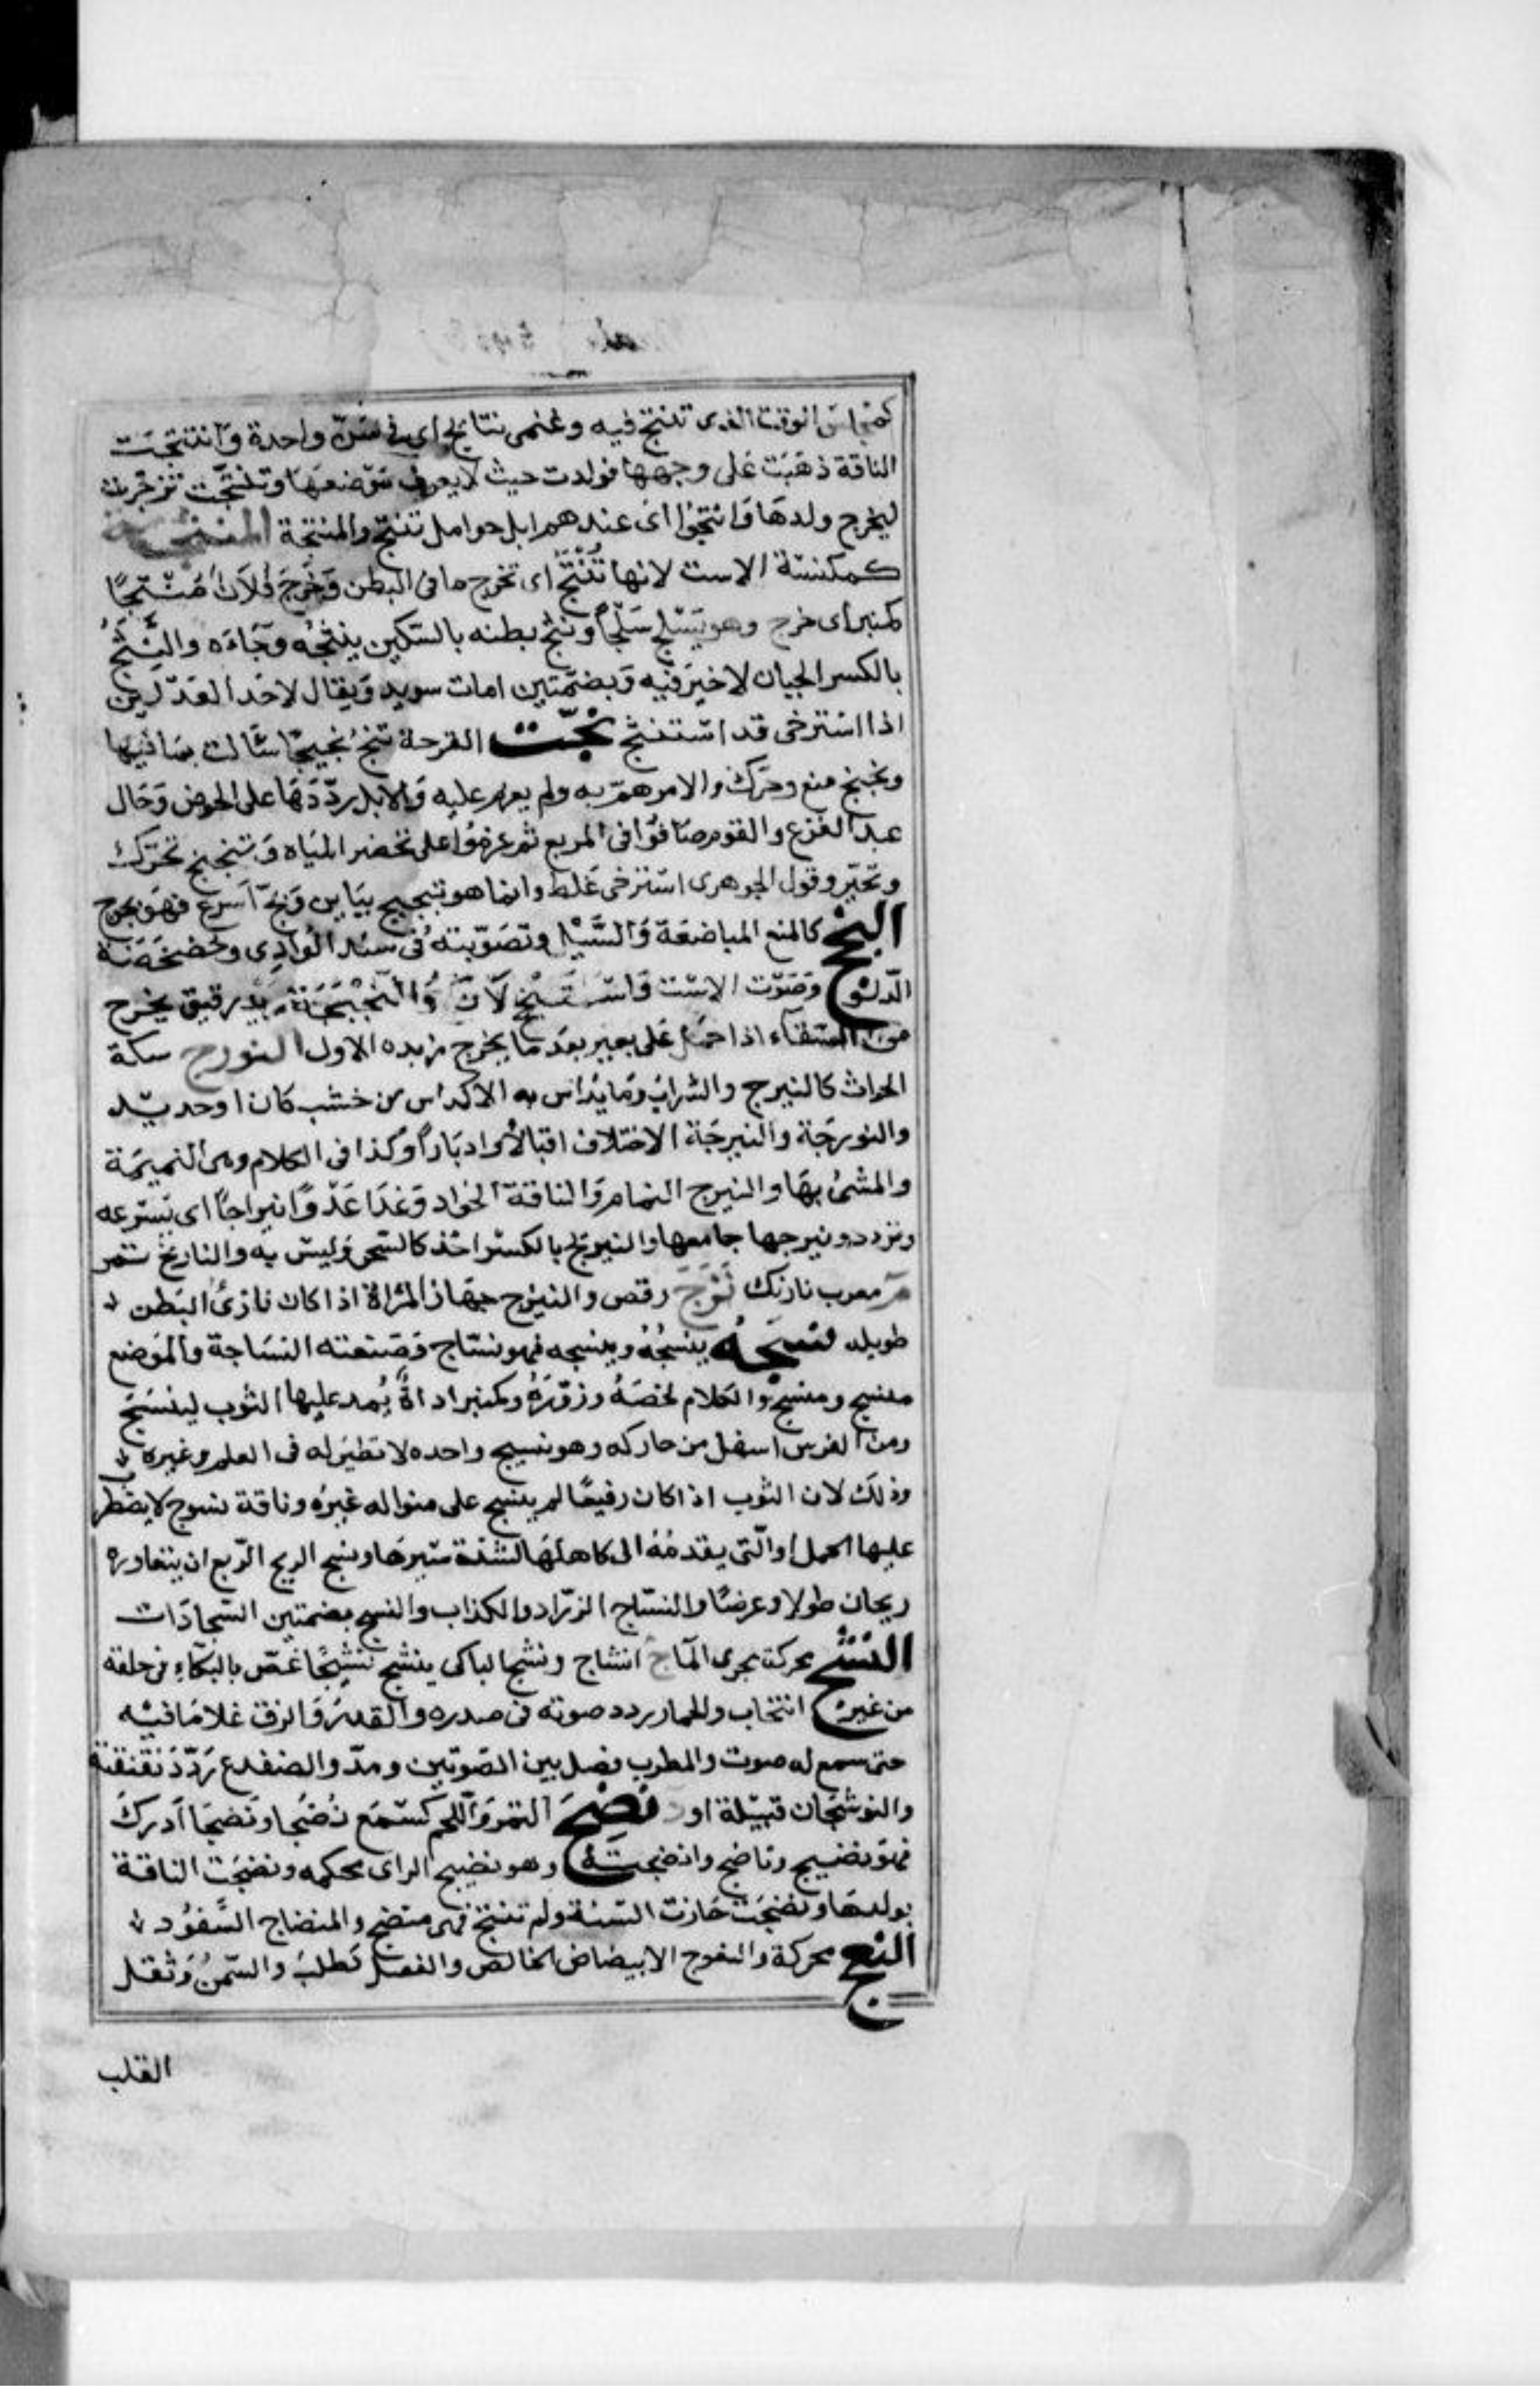 كمجلس الوقت الذى تنتج فيه وغنمى نتائج اى فى سن واحدة وَانتتجَت
الناقة ذهَبَت عَلى وجهها فولدت حيث لا يعرف مَوْضعهَا وتنتَّجت تزحّرت
ليخرج ولدهَا وَانتجُوا اىْ عندهم ابل حوامل تنتج والمنتجة
كمكنسَة الاست لانها تُنْتَجُ اى تخرج ما فى البطن وَخَرَجَ فُلاَن مُنثجًا
كمنبر اى خرج وهو يَسْلح سَلْحًا ونثج بطنه بالسّكين ينثجُه وجَاءَه والنِّثْجُ
بالكسر الجبان لا خيرَ فيه وَبضمّتين امات سويد وَيقال لاحَد العَدْلَين
اذا استرخى قد اسْتنثج نجّت القرحة تنجُ نجيجًا سَالت بمَا فيها
ونجنج منع وحَرّك والامر همّ به ولم يعزم عليه وَالابل ردّدَهَا على الحوض وَجَال
عند الفزع والقوم صَافُوا فى المربع ثم عزمُوا على تحضر الميَاه وَتنجنج تحَرّك
وتحيّر وقول الجوهرى اسْترخى غَلط وانما هو تبجبج ببَاين وَنجّ اَسرع فهو نجوج
النخج كالمنع المباضعَة وَالسَّيْل وتصَوّبته فى سند الوَادِى وخضخضَة
الدّلو وَصَوْت الاسْت وَاسْتنخج لاَنَ وَالنخجَة زبد رقيق يخرج
من السقآء اذا حمل عَلى بعير بعَد مَا يخرج زبده الاول النورج سكة
الحراث كالنيرج والسّراب وَمَا يدَاس به الاكداس من خشب كان او حديد
والنورجَة والنيرجَة الاختلاف اقبالًا وادبَارًا وكذا فى الكلام وهى النميمَة
والمشى بهَا والنيرج النمام وَالناقة الجواد وَعَدَا عَدْوًا نيراجًا اى بسُرعه
وتردد ونيرجها جامعها والنيرنج بالكسْر اخذ كالسّحر وَليسَ به والنارنج ثمر
م معرب نارنك نَزَجَ رقص والنيزج جهَاز المرْاة اذا كان نازىْ البَظر
طويله نسَجَهُ ينسُجُه وينسِجه فهو نسّاج وَصَنعته النسَاجة والموَضع
منسج ومنسِج والكلام لخصَهُ وزوّرَهُ وكمنبر اداةٌ يُمد عليها الثوب لينسَجَ
ومن الفرس اسفل من حاركه وهو نسيج واحده لا نظيَر له فى العلم وغيره
وذلك لان الثوب اذا كان رفيعًا لم ينسج على منواله غيرُه وناقة نسوج لا يضطرب
عليها الحمل او الّتى يقدمُهُ الى كاهلهَا لشدة سَيرهَا ونسج الريح الرّبع ان يتعاوره
ريحان طولا وعرضًا والنسّاج الزرّاد والكذاب والنسج بضمتين السّجادَات
النشج محركة مجرى المآء ج انشاج ونشج الباكى ينشج نشِيجًا غصّ بالبكاءِ فى حلقه
من غير انتحاب والحمار ردد صوته فى صدره وَالقدر وَالزق غلا مَا فيه
حتى سمع له صوت والمطرب فصل بين الصّوتين ومدّ والضفدع رَدّدَ نقنقته
والنوشجَان قبيْلة او د نضِجَ الثمر وَاللحم كسَمعَ نُضْجا ونَضجَا اَدركَ
فهوَ نضيج وناضج وانضجته وهو نضيج الراى محكمه ونضجَت الناقة
بولدهَا ونضجَت جَازت السّنة ولم تنتج فهى منضج والمنضاج السَّفوُد
النعج محركة والنعوج الابيضاض الخالص والفعل كطلبَ والسّمن وَثقل
القلب